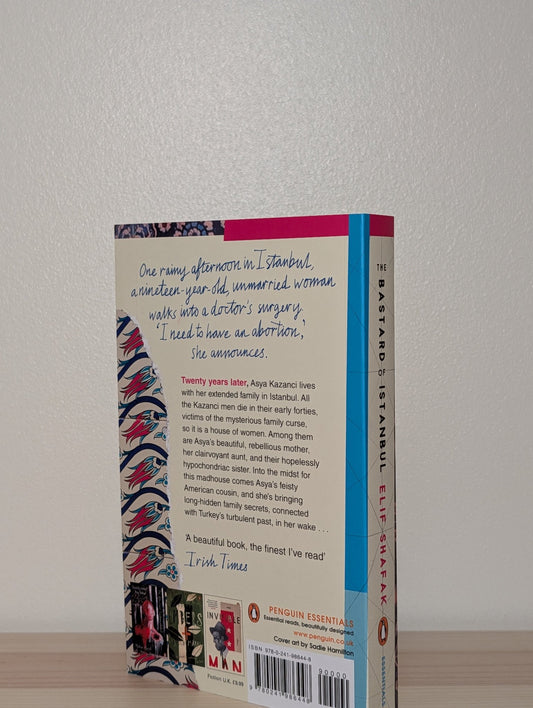 One rainy afternoon in Istanbul,
a nineteen-year-old, unmarried woman
walks into a doctor's surgery.
'I need to have an abortion,'
she announces.
Twenty years later, Asya Kazanci lives
with her extended family in Istanbul. All
the Kazanci men die in their early forties,
victims of the mysterious family curse,
so it is a house of women. Among them
are Asya's beautiful, rebellious mother,
her clairvoyant aunt, and their hopelessly
hypochondriac sister. Into the midst for
this madhouse comes Asya's feisty
American cousin, and she's bringing
long-hidden family secrets, connected
with Turkey's turbulent past, in her wake . . .
'A beautiful book, the finest I've read'
Irish Times
MAN
PENGUIN ESSENTIALS
Essential reads, beautifully designed
www.penguin.co.uk
Cover art by Sadie Hamilton
Fiction U.K. £9.99
ISBN 978-0-241-98644-8
90000
9 780241 986448
THE BASTARD OF ISTANBUL ELIF SHAFAK
ESSENTIALS